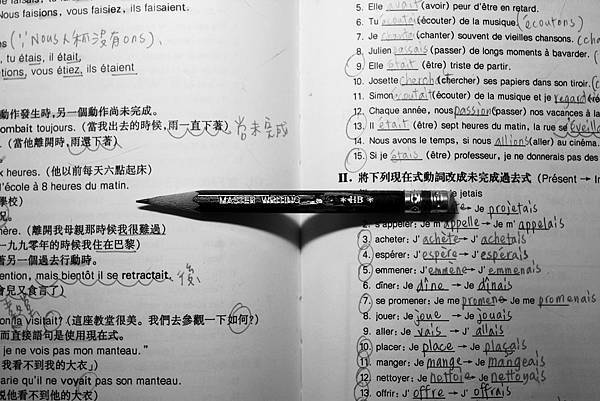 Nous faisions, vous faisiez, ils faisaient.
(∵Nous 人稱沒有ons)、
tu étais, il était,
étions, vous étiez, ils étaient
動作發生時,另一個動作尚未完成。
tombait toujours. (當我出去的時候,雨一直下著) 尚未完成
(當他離開時,雨還下著)
x heures. (他以前每天六點起床)
l'école à 8 heures du matin.
學校)
況。
mère. (離開我母親那時候我很難過)
一九九零年的時候我住在巴黎)
著另一個過去行動時。
ention, mais bientôt il se retractait. 後
會兒又食言了)
on la visitait? (這座教堂很美。我們去參觀一下如何?)
而直接語句是使用現在式。
je ne vois pas mon manteau."
我看不到我的大衣」)
arie qu'il ne voyait pas son manteau.
說他看不到他的大衣)
5. Elle avait (avoir) peur d'être en retard.
6. Tu écoutais (écouter) de la musique. (écoutons)
7. Je chantais (chanter) souvent de vieilles chansons.
8. Julien passais (passer) de longs moments à bavarder.
9. Elle était (être) triste de partir.
10. Josette cherch (chercher) ses papiers dans son tiroir.
11. Simon écoutait (écouter) de la musique et je regard
12. Chaque année, nous passion (passer) nos vacances à la
13. Il était (être) sept heures du matin, la rue se éveille
14. Nous avons le temps, si nous allions (aller) au cinéma.
15. Si je étais (être) professeur, je ne donnerais pas des
II. 將下列現在式動詞改成未完成過去式 (Présent → Im
je jetais
→ Je projetais
2. s'appeler: Je m'appelle → Je m'appelais
3. acheter: J'achète → J'achetais
4. espérer: J'espère → J'espérais
5. emmener: J'emmene → J'emmenais
6. dîner: Je dîne → Je dînais
7. se promener: Je me promene → Je me promenais
8. jouer: Je joue → Je jouais
9. aller: Je vais → J'allais
10. placer: Je place → Je plaçais
11. manger: Je mange → Je mangeais
12. nettoyer: Je nettoie → Je nettoyais
13. offrir: J'offre → J'offrais
MASTER WRITING HB